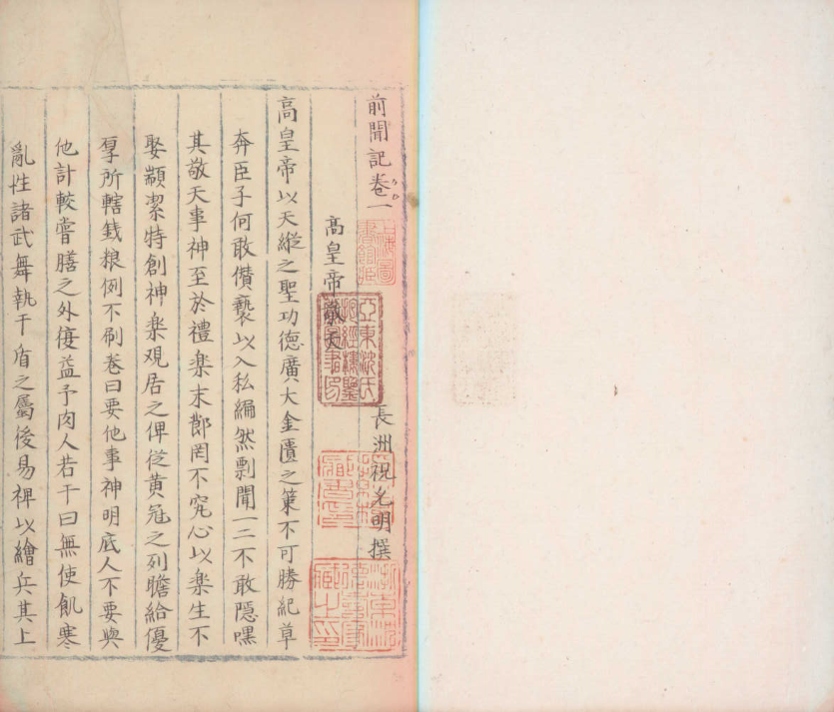 前聞記卷一
長洲祝允明撰
高皇帝敬天
高皇帝以天縱之聖功德廣大金匱之策不可勝紀草
奔臣子何敢儹褻以入私編然剽聞一二不敢隱嘿
其敬天事神至於禮樂末節罔不究心以樂生不
娶顓潔特創神樂观居之俾從黃冠之列贍給優
厚所轄錢粮例不刷卷曰要他事神明底人不要與
他計較嘗膳之外復益予肉人若干曰無使飢寒
亂性諸武舞執干盾之屬後易裨以繪兵其上
亞東沈氏